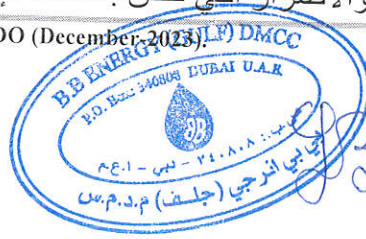 والاضرار التي
DO (December-2023).
B.B ENERGY (GULF) DMCC
P.O. Box: 340808 DUBAI U.A.E
BB
ص.ب: ٣٤٠٨٠٨ - دبي - ا.ع.م
بي بي انرجي (جلف) م.د.م.س